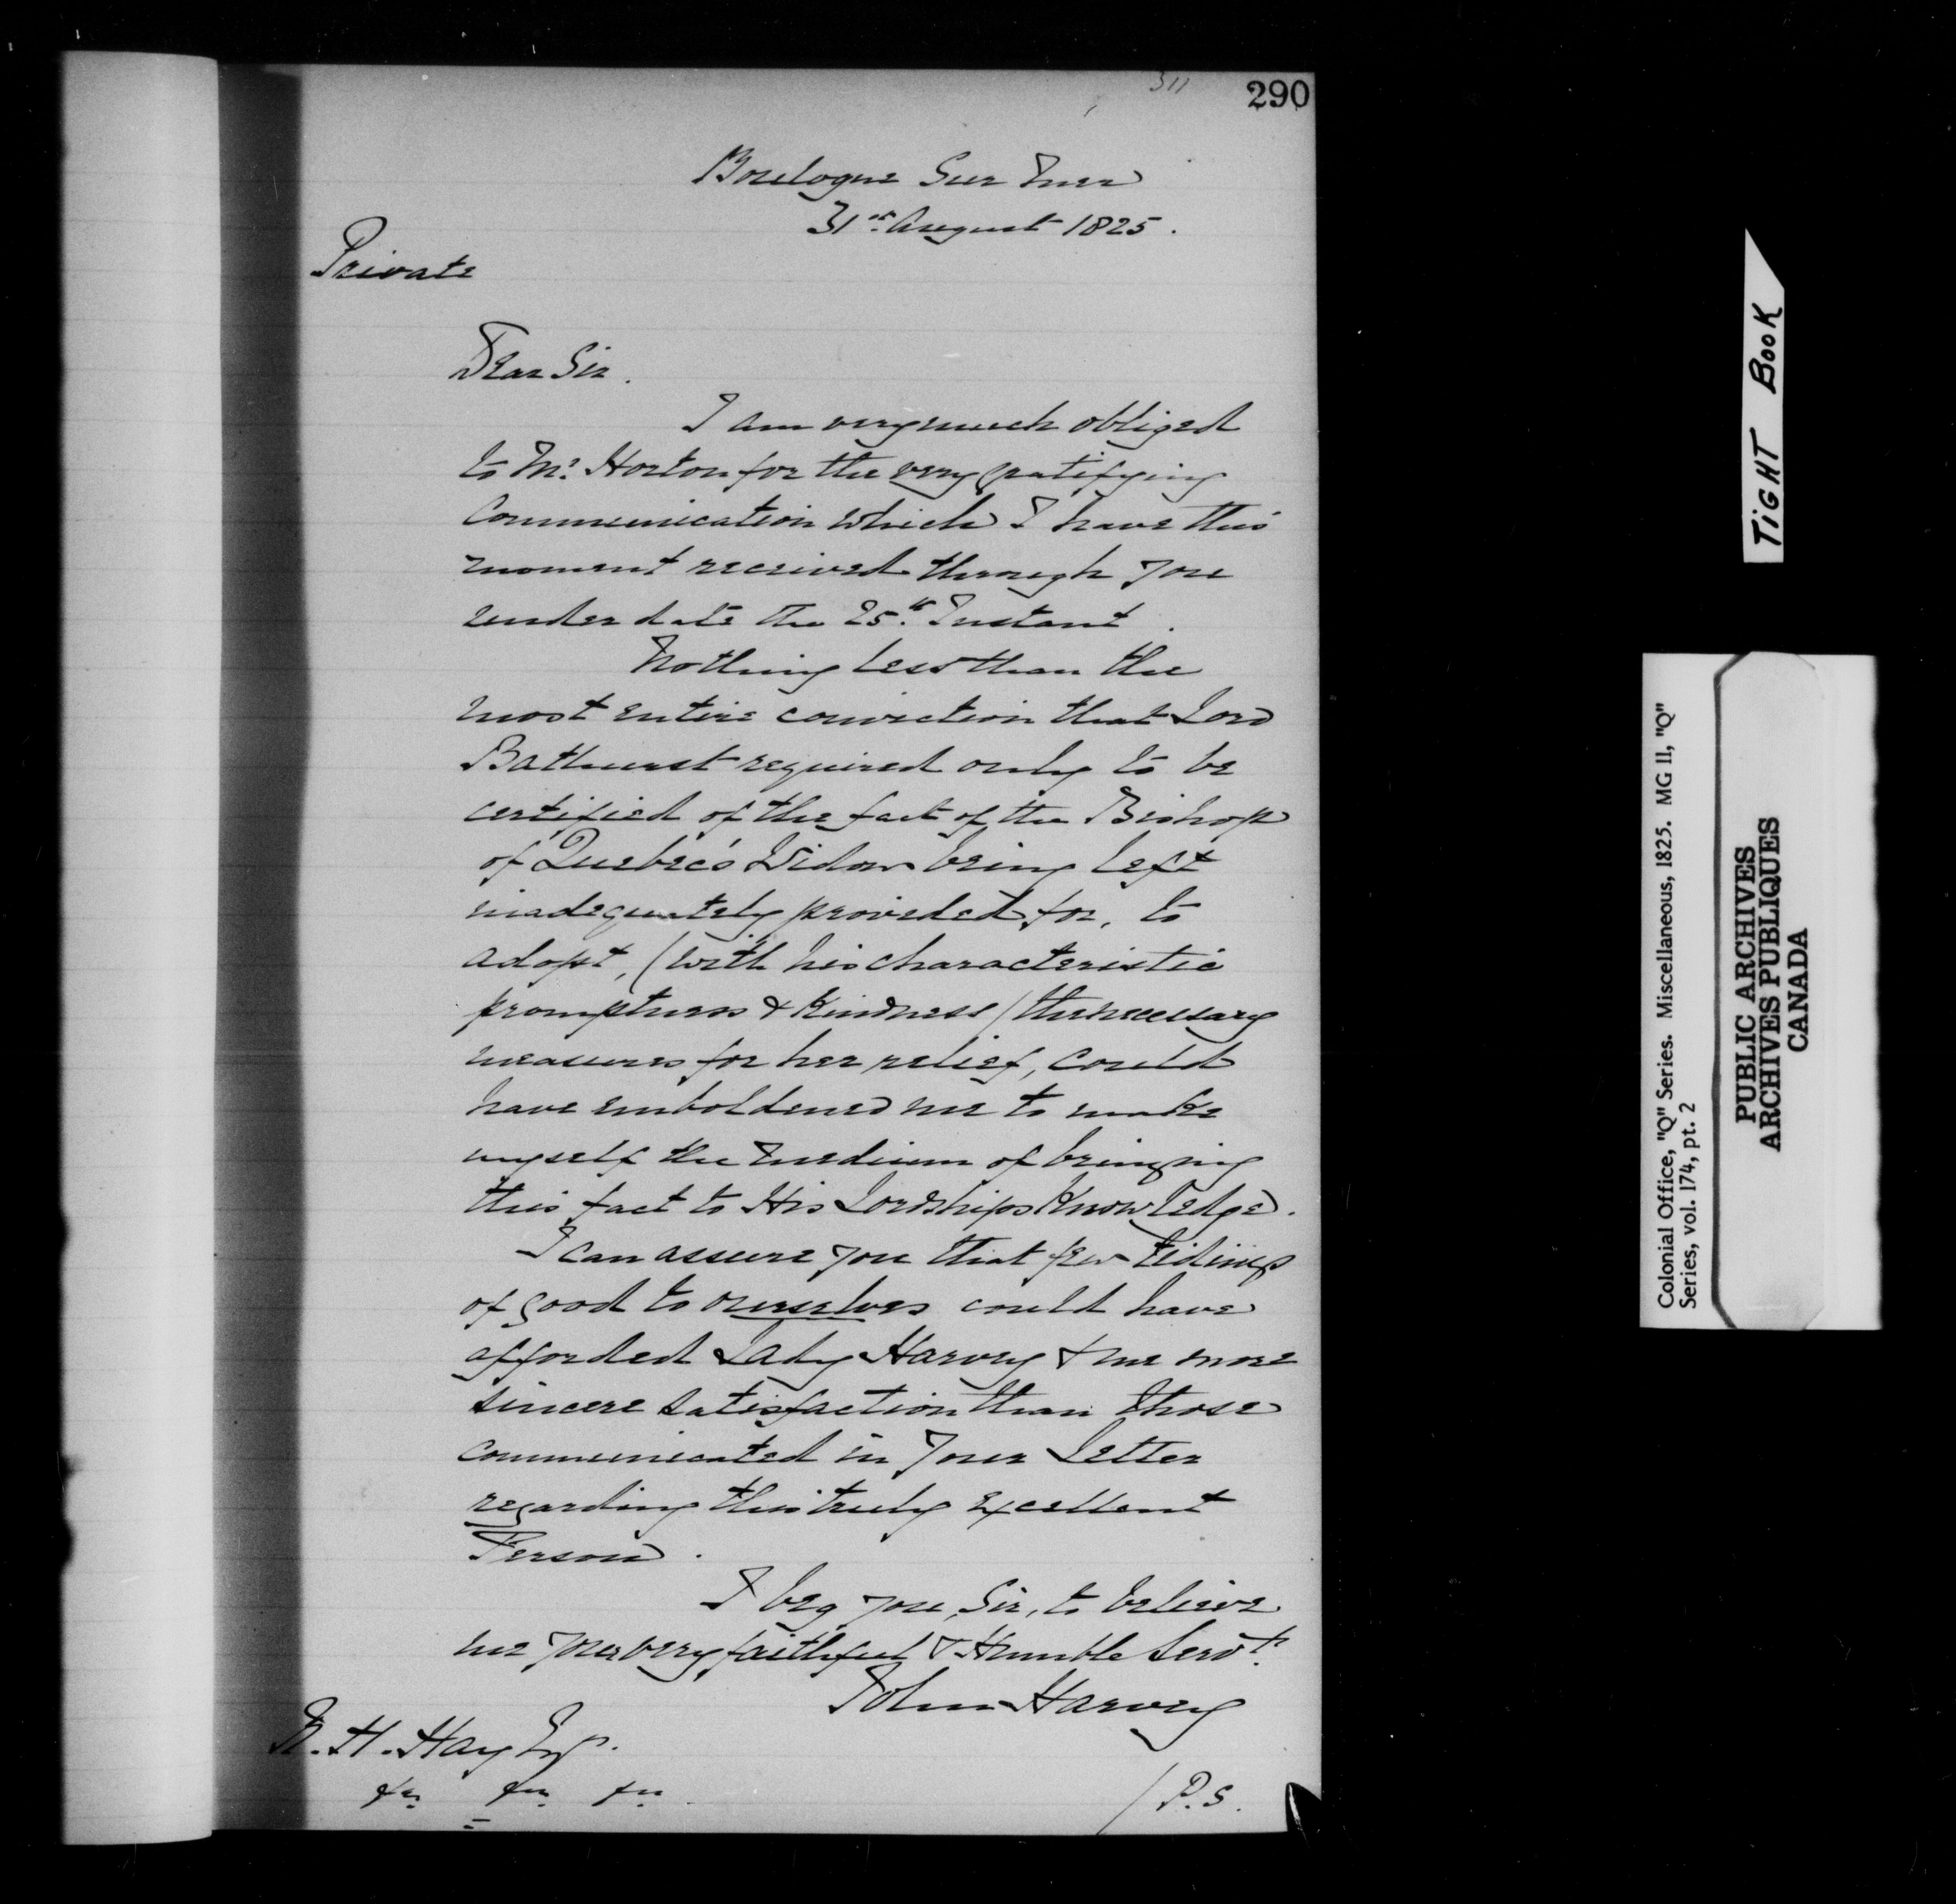 311
290
Boulogne Sur Mer
31st August 1825.
Private
Dear Sir.
I am very much obliged
to Mr. Horton for the very gratifying
Communication which I have this
moment received through you
under date the 25th Instant.
Nothing less than the
most entire conviction that Lord
Bathurst required only to be
certified of the fact of the Bishop
of Quebec's Widow being left
inadequately provided for, to
adopt, (with his characteristic
promptness & Kindness) the necessary
measures for her relief, could
have emboldened me to make
myself the medium of bringing
this fact to His Lordships Knowledge.
I can assure you that few tidings
of good to ourselves could have
afforded Lady Harvey & me more
sincere satisfaction than those
communicated in Your Letter
regarding this truly excellent
Person.
I beg you, Sir, to believe
me your very faithful & Humble Servt.
John Harvey
R. H. Hay Esqr.
&c. &c. &c.
/P.S.
TIGHT BOOK
Colonial Office, "Q" Series. Miscellaneous, 1825. MG 11, "Q"
Series, vol. 174, pt. 2
PUBLIC ARCHIVES
ARCHIVES PUBLIQUES
CANADA